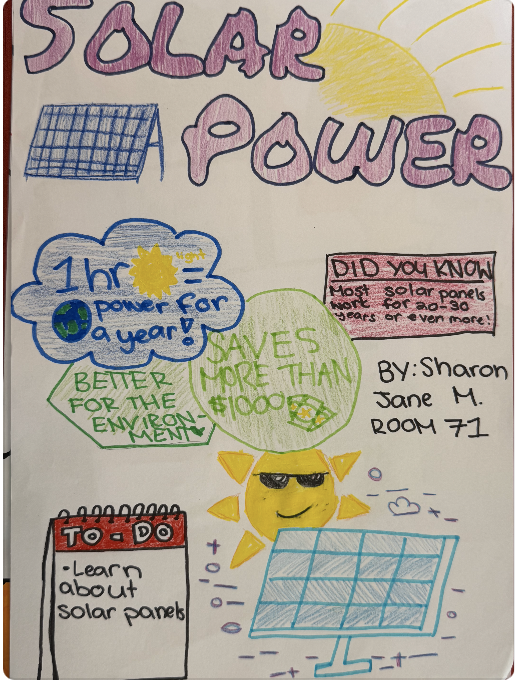 SOLAR
POWER
1hr light =
power for
a year!
DID YOU KNOW
Most solar panels
work for 20-30
years or even more!
SAVES
MORE THAN
$1000
BETTER
FOR THE
ENVIRON-
MENT
BY: Sharon
Jane M.
ROOM 71
TO-DO
·Learn
about
solar panels